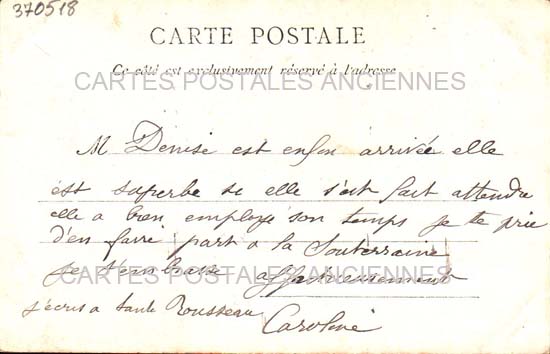 370518
CARTE POSTALE
Ce côté est exclusivement réservé à l'adresse
CARTES POSTALES ANCIENNES
M Denise est enfin arrivée elle
est superbe si elle s'est fait attendre
elle a bien employé son temps je te prie
d'en faire part a la Souterraine
je t'embrasse affectueusement
CARTES POSTALES ANCIENNES
j'écris a tante Rousseau
Caroline